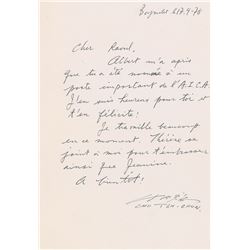 le 17.9.70
Cher Raoul.
Albert m'a apris
que tu a été nommé à un
poste important de l'A.I.C.A.
J'en suis heureux pour toi et
t'en félicite!
Je travaille beaucoup
en ce moment. Thérèse se
joint à moi pour t'embrasser
ainsi que Jeanine.
A bientôt!
CHU TEH-CHUN.